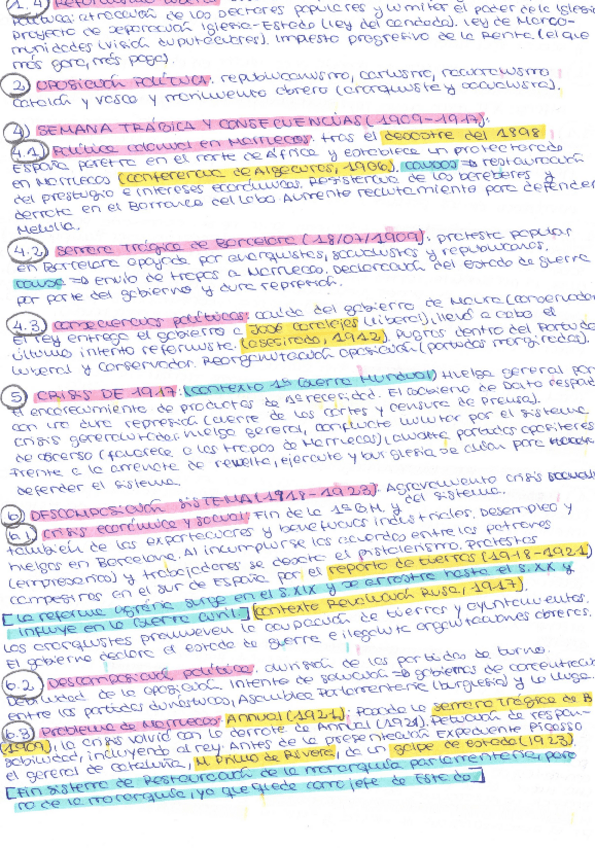 1.4
Política: atracción de los sectores populares y limitar el poder de la Iglesia
Proyecto de separación Iglesia-Estado (ley del candado). Ley de Manco-
munidades (visión diputaciones). Impuesto progresivo de la Renta (el que
más gana, más paga).
2. OPOSICIÓN POLÍTICA: republicanismo, carlismo, nacionalismo
catalán y vasco y movimiento obrero (anarquista y socialista).
4) SEMANA TRÁGICA Y CONSECUENCIAS (1909-1917):
4.1.) Política colonial en Marruecos: tras el desastre del 1898
España penetra en el norte de África y establece un protectorado
en Marruecos (conferencia de Algeciras, 1906). causas => restauración
del prestigio e intereses económicos. Resistencia de los bereberes y
derrota en el Barranco del Lobo. Aumento reclutamiento para defender
Melilla.
4.2.) Semana Trágica de Barcelona (18/07/1909): protesta popular
en Barcelona apoyada por anarquistas, socialistas y republicanos.
causa => envío de tropas a Marruecos. Declaración del estado de guerra
por parte del gobierno y dura represión.
4.3. consecuencias políticas: caída del gobierno de Maura (conservador)
el rey entrega el gobierno a José Canalejas (liberal), llevó a cabo el
último intento reformista. (asesinado, 1912). Pugnas dentro del Partido
Liberal y Conservador. Reorganización oposición (partidos marginados).
5) CRISIS DE 1917: (contexto 1ª Guerra Mundial) Huelga general por
el encarecimiento de productos de 1ª necesidad. El Gobierno de Dato
con una dura represión (cierre de las cortes y censura de prensa).
crisis generalizada: huelga general, conflicto militar por el sistema
de ascenso (favorece a las tropas de Marruecos)
frente a la amenaza de revuelta, ejército y burguesía se alían para
defender el sistema.
6) DESCOMPOSICIÓN SISTEMA (1918-1923): Agravamento crisis
del sistema.
6.1) crisis económica y social: Fin de la 1ª G.M. y
también de las exportaciones y beneficios industriales. Desempleo y
huelgas en Barcelona. Al incumplirse los acuerdos entre los patrones
(empresarios) y trabajadores se desata el pistolerismo. Protestas
campestres en el sur de España por el reparto de tierras (1918-1921)
[La reforma agraria surge en el S.XIX y se arrastra hasta el S.XX y
influye en la Guerra Civil.] (contexto Revolución Rusa, 1917).
Los anarquistas promueven la ocupación de tierras y ayuntamientos.
El gobierno declara el estado de guerra e ilegaliza organizaciones obreras.
6.2. Descomposición política: división de los partidos de turno.
Debilidad de la oposición. Intento de solución => gobiernos de concentración
entre los partidos dinásticos, Asamblea Parlamentaria (burguesía) y la lliga.
6.3) Problema de Marruecos: Annual (1921): Pasada la semana Trágica de B
(1909), la crisis volvió con la derrota de Annual (1921). Petición de respon-
sabilidad, incluyendo al rey. Antes de la presentación Expediente Picasso
el general de Cataluña, M. Primo de Rivera, da un golpe de estado (1923).
[Fin sistema de Restauración de la monarquía parlamentaria, pero
no de la monarquía, ya que queda como jefe de Estado]